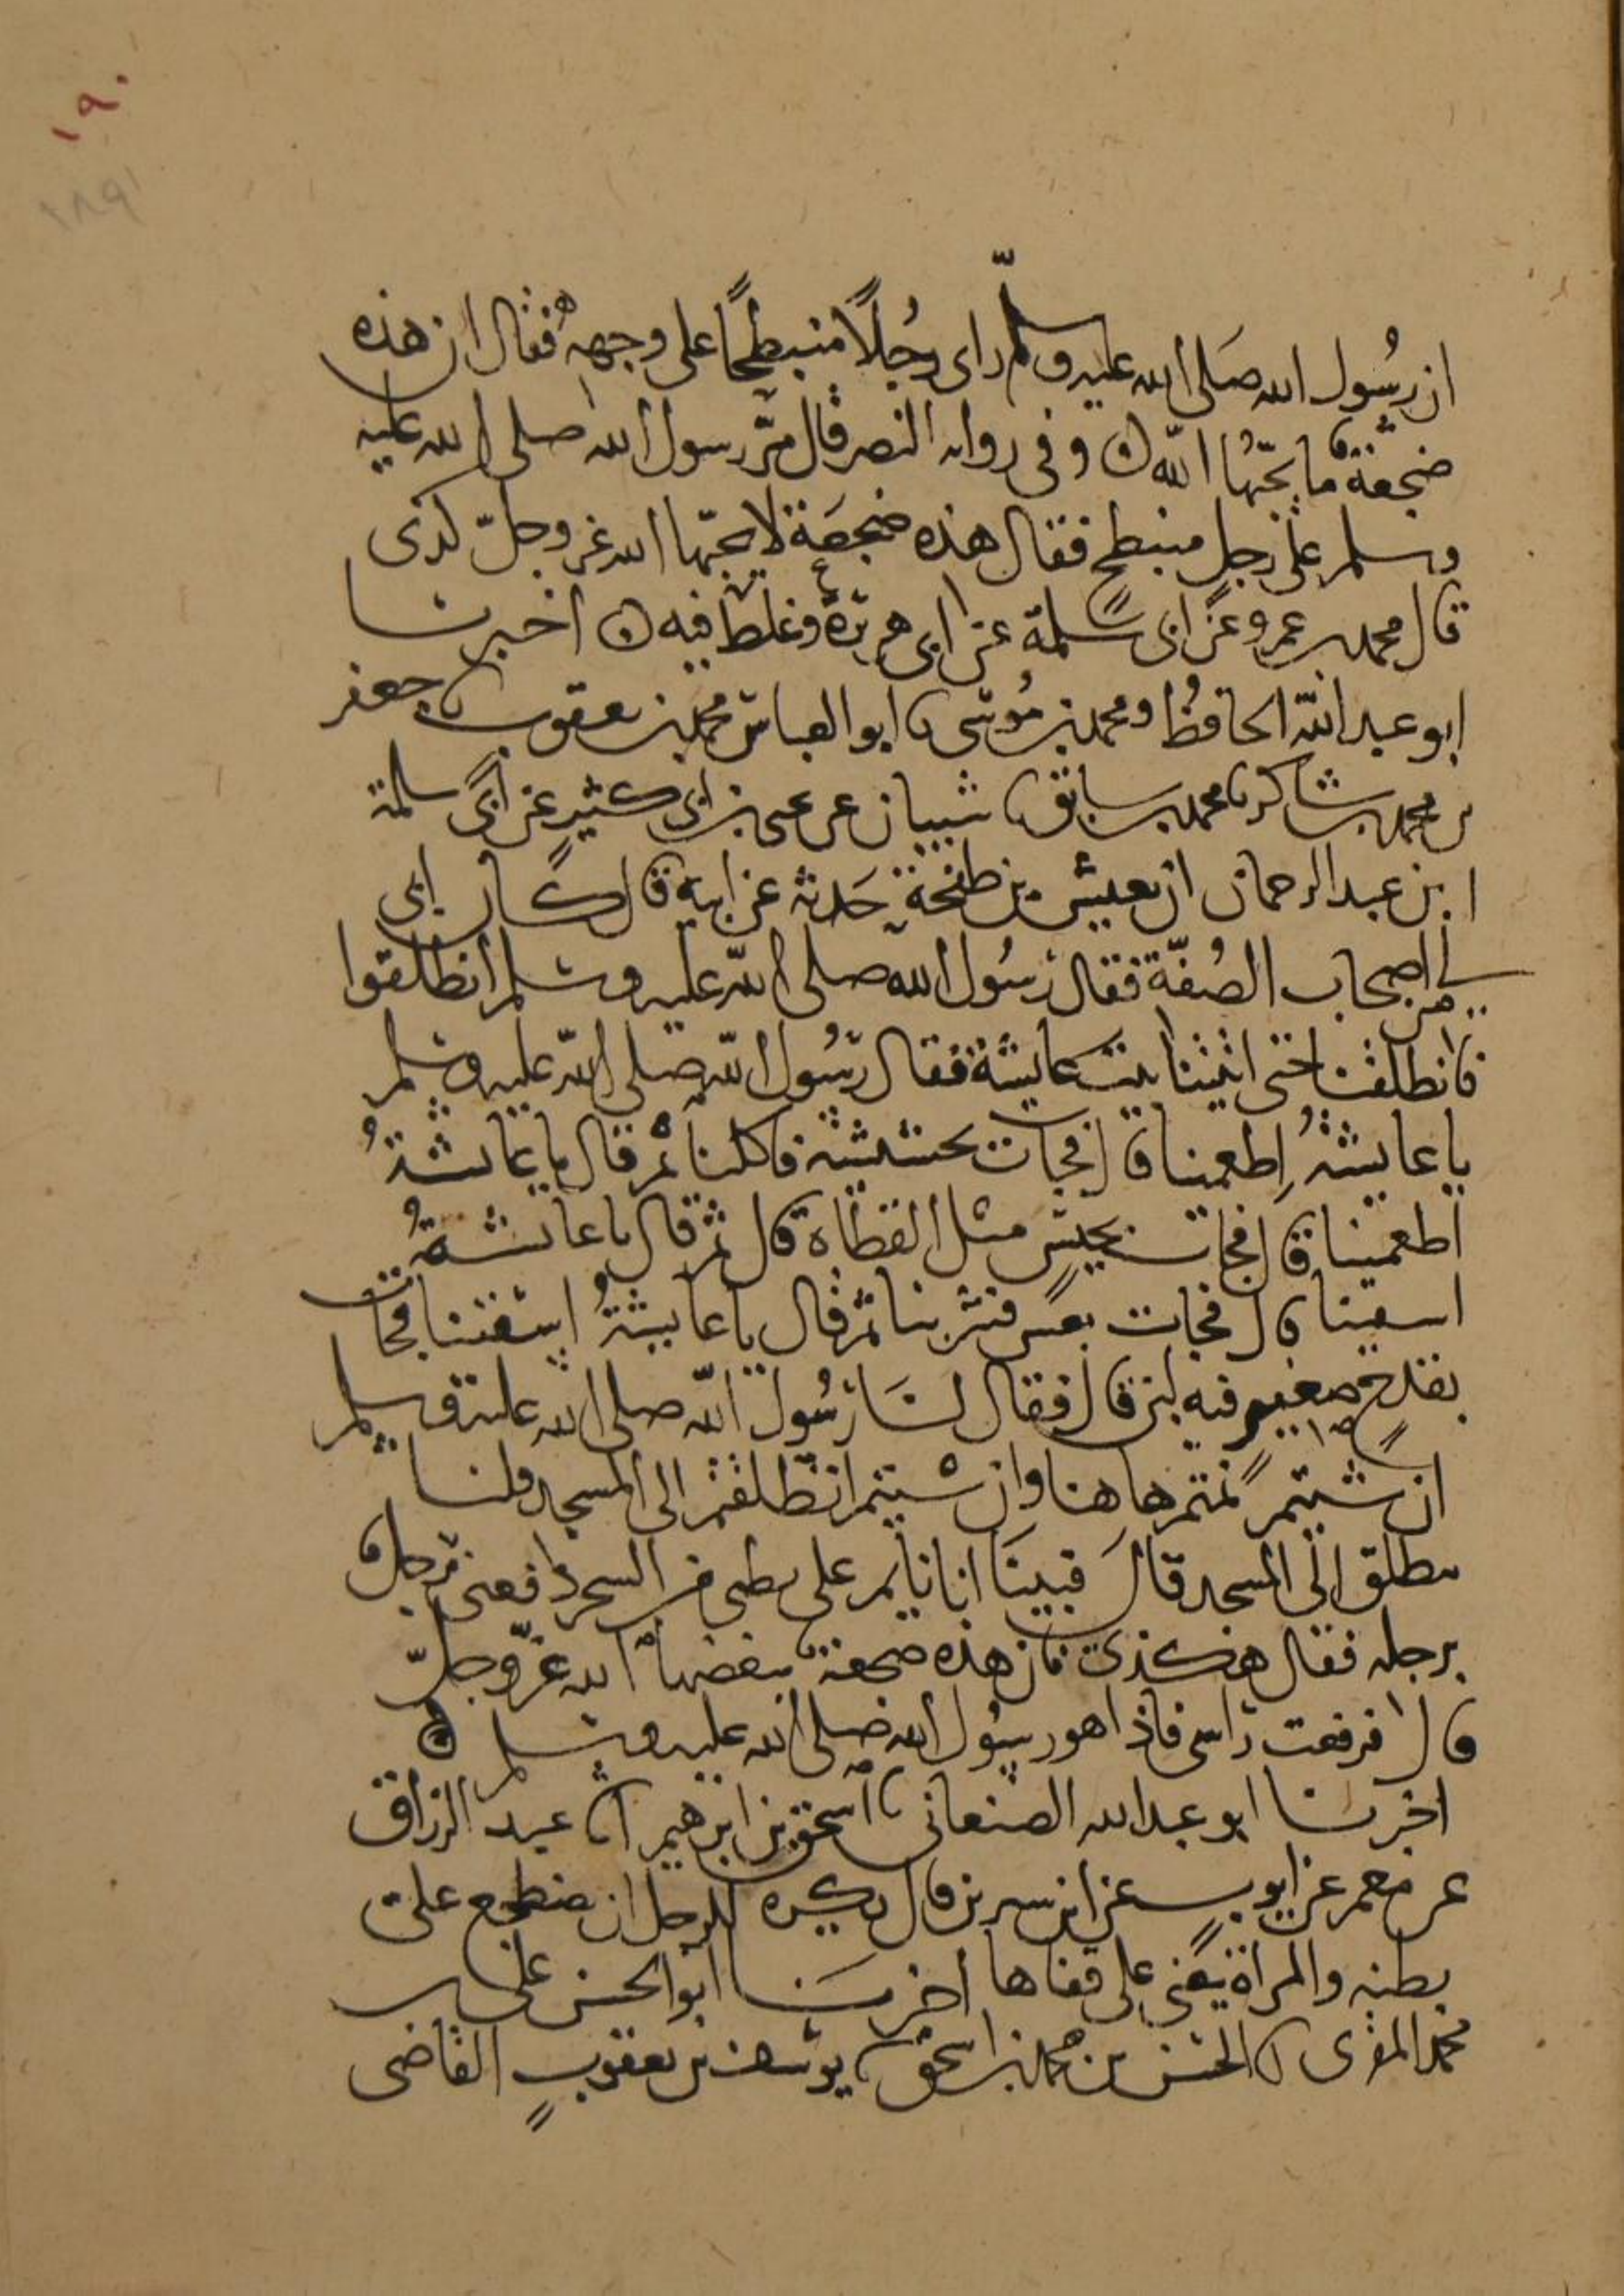 ١٩٠
١٨٩
ان رسُول الله صَلى الله عليه وسلّم راى رجُلًا منبطحًا على وجهه فقال ان هذه
ضجعة ما يحبّها اللّه وفى روايه النصر قال مرّ رسول الله صلى الله عليه
وسلم على رجل منبطح فقال هذه ضجعَة لا يحبّها الله عز وجلّ كذى
قال محمد بن عمرو عن ابى سلمة عن ابى هريرة وغلط فيه اخبرنا
ابو عبد اللّه الحافظ ومحمد بن مُوسى نا ابو العباس محمد بن يعقوب نا جعفر
بن محمد بن شاكر نا محمد بن سابق نا شيبان عن يحيى بن ابى كثير عن ابى سلمة
ابن عبد الرحمان ان يعيش بن طخحة حَدثه عن ابيه قال كان ابى
من اصحاب الصُفّة فقال رسُول الله صلى اللّه عليه وسلم انطلقوا
فانطلقنا حتى اتينا بيت عايشة فقال رسُول اللّه صلى اللّه عليه وسلم
يا عايشةُ اِطعمينا قال فجات بحشيشة فاكلنا ثم قال يا عايشةُ
اطعمينا قال فجات بحيسٍ مثل القطاة قال ثم قال يا عايشةُ
اسقينا قال فجات بعسٍ فشربنا ثم قال يا عايشةُ اسقينا فجات
بقدحٍ صغيرٍ فيه لبن قال فقال لنَا رسُول اللّه صلى الله عليه وسلم
ان شيتم نمتم هاهنا وان شيتم انطلقتم الى المسجد قلنا
ننطلق الى المسجد قالَ فبينَا انا نايم على بطنى من السحر دفعنى رجل
برجله فقال هكذى فان هذه ضجعة يبغضها الله عزّ وجلّ
قال فرفعت راسى فاذا هو رسُول الله صلى الله عليه وسلم
اخبرنا ابو عبد الله الصنعانى نا اسحق بن ابرهيم انا عبد الرزاق
عن معمر عن ايوب عن ابن سيرين قال يكره للرجل ان يضطجع على
بطنه والمراة يعنى على قفاها اخبرنا ابو الحسن على بن
محمد المقرى انا الحسن بن محمد بن اسحق نا يوسف بن يعقوبٍ القاضى